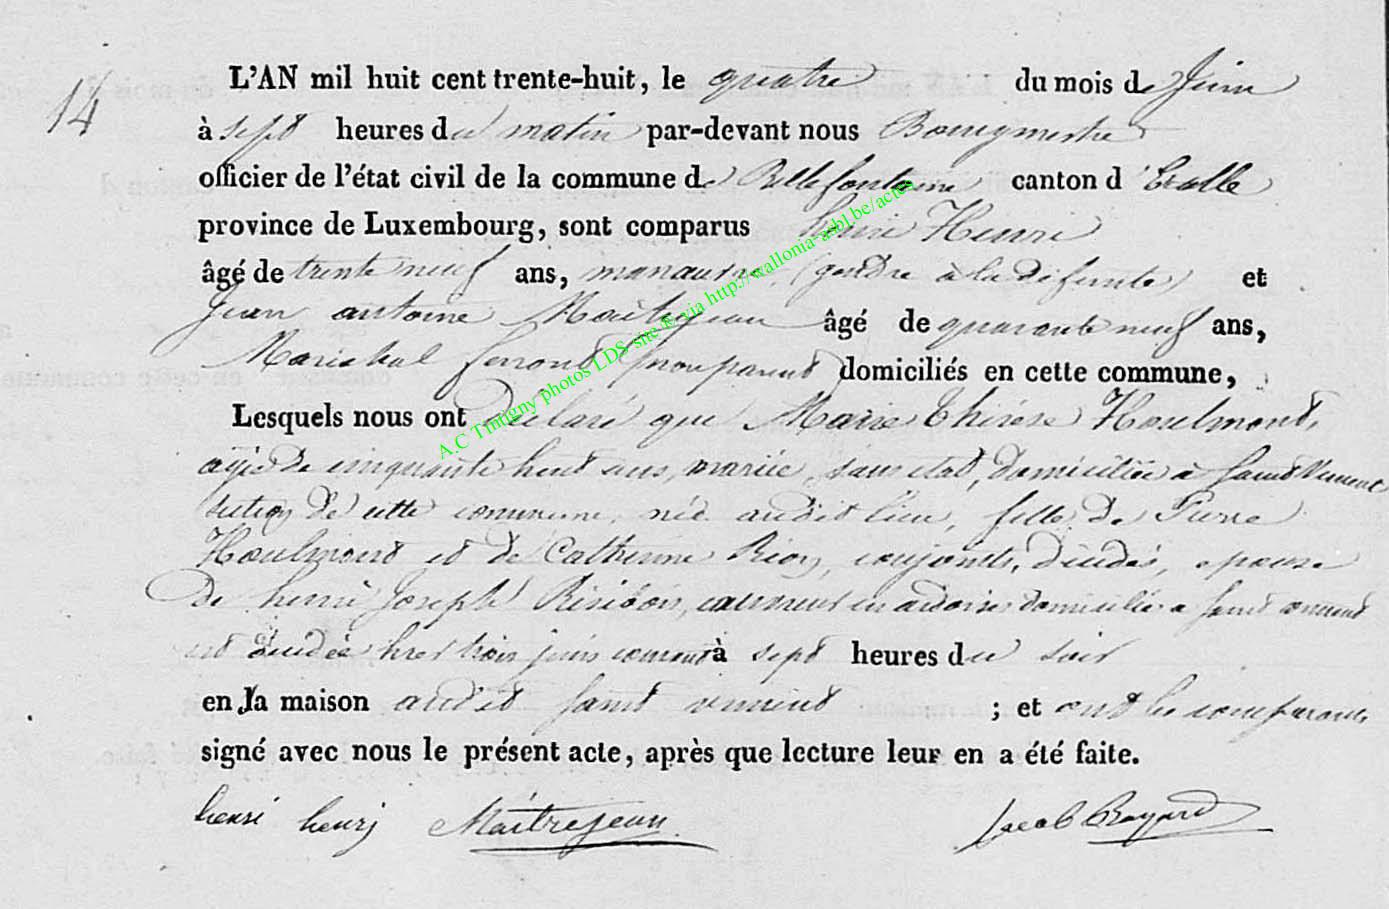 14
L'AN mil huit cent trente-huit, le quatre du mois de Juin
à sept heures du matin par-devant nous Bourgmestre
officier de l'état civil de la commune de Bellefontaine canton d'Etalle
province de Luxembourg, sont comparus henri Henri
âgé de trente neuf ans, manœuvre, (gendre à la défunte) et
Jean antoine Maitrejean âgé de quarante neuf ans,
Maréchal ferrant (non parent) domiciliés en cette commune,
Lesquels nous ont déclaré que Marie Thérèse Houlmont,
agée de cinquante huit ans, mariée, sans état, domiciliée à saint vincent
section de cette commune, née audit lieu, fille de Pierre
Houlmont et de Catherine Rion, conjoints, décédés, epouse
de henri Joseph Résibois, ardoises domicilié a saint vincent
est décédée hier trois juin courant à sept heures du soir
en la maison audit saint vincent ; et ont les comparants
signé avec nous le présent acte, après que lecture leur en a été faite.
henri henri Maîtrejean Jacob
A.C Tintigny photos LDS site & via http://wallonia-asbl.be/actes